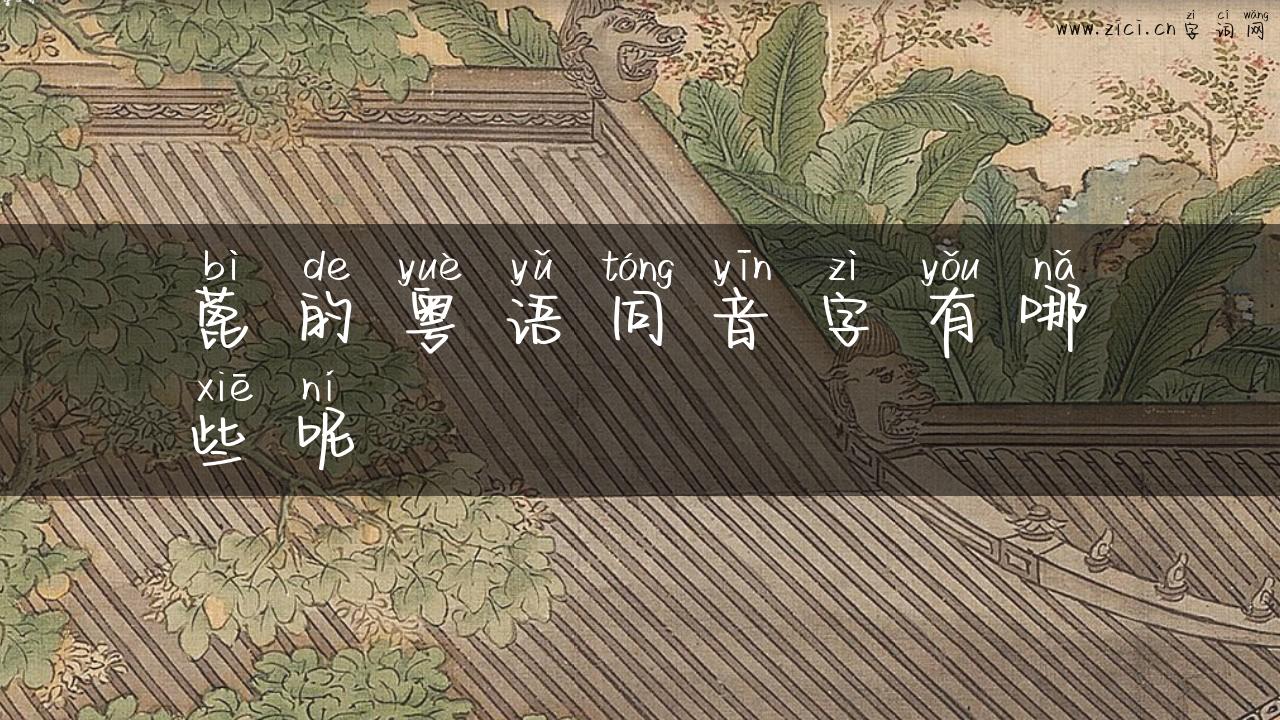 zì cí wǎng
www.zici.cn 字 词 网
bì de yuè yǔ tóng yīn zì yǒu nǎ
蓖 的 粤 语 同 音 字 有 哪
xiē ní
些 呢